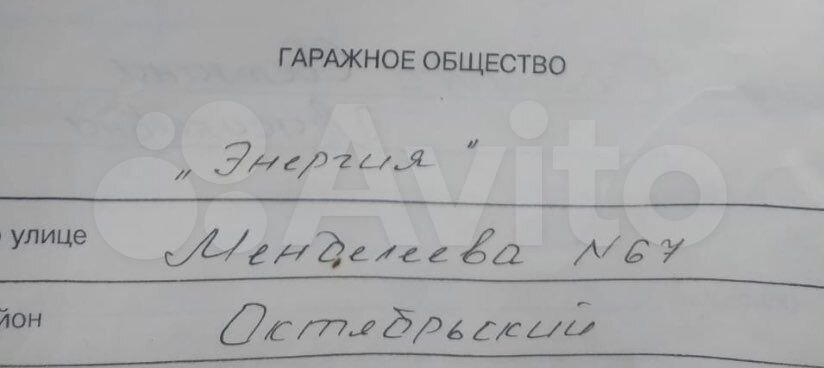 ГАРАЖНОЕ ОБЩЕСТВО
„Энергия"
улице Менделеева №67
Октябрьский
Avito